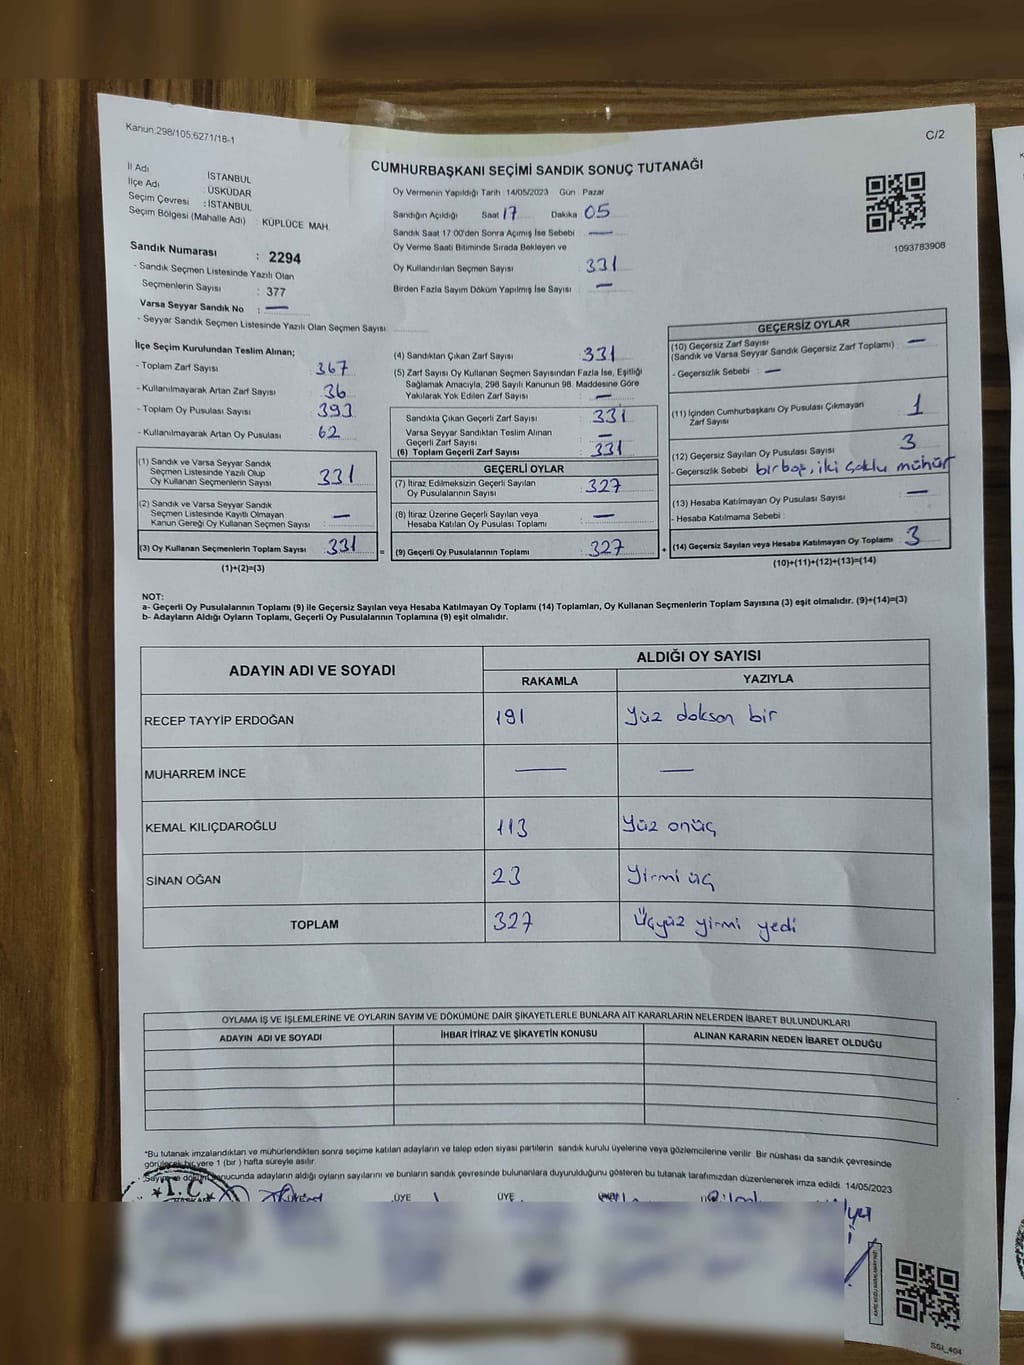 Kanun:298/105,6271/18-1
C/2
CUMHURBAŞKANI SEÇİMİ SANDIK SONUÇ TUTANAĞI
İl Adı İSTANBUL
İlçe Adı : ÜSKÜDAR
Seçim Çevresi : İSTANBUL
Seçim Bölgesi (Mahalle Adı) : KÜPLÜCE MAH.
Sandık Numarası : 2294
- Sandık Seçmen Listesinde Yazılı Olan
Seçmenlerin Sayısı : 377
Varsa Seyyar Sandık No : —
- Seyyar Sandık Seçmen Listesinde Yazılı Olan Seçmen Sayısı:
Oy Vermenin Yapıldığı Tarih : 14/05/2023 Gün : Pazar
Sandığın Açıldığı Saat 17 Dakika 05
Sandık Saat 17:00'den Sonra Açımış İse Sebebi : —
Oy Verme Saati Bitiminde Sırada Bekleyen ve
Oy Kullandırılan Seçmen Sayısı : 331
Birden Fazla Sayım Döküm Yapılmış İse Sayısı : —
1093783908
İlçe Seçim Kurulundan Teslim Alınan;
- Toplam Zarf Sayısı : 367
- Kullanılmayarak Artan Zarf Sayısı : 36
- Toplam Oy Pusulası Sayısı : 393
- Kullanılmayarak Artan Oy Pusulası : 62
(1) Sandık ve Varsa Seyyar Sandık
Seçmen Listesinde Yazılı Olup
Oy Kullanan Seçmenlerin Sayısı : 331
(2) Sandık ve Varsa Seyyar Sandık
Seçmen Listesinde Kayıtlı Olmayan
Kanun Gereği Oy Kullanan Seçmen Sayısı : —
(3) Oy Kullanan Seçmenlerin Toplam Sayısı : 331
(1)+(2)=(3)
=
(4) Sandıktan Çıkan Zarf Sayısı : 331
(5) Zarf Sayısı Oy Kullanan Seçmen Sayısından Fazla İse, Eşitliği
Sağlamak Amacıyla, 298 Sayılı Kanunun 98. Maddesine Göre
Yakılarak Yok Edilen Zarf Sayısı : —
Sandıkta Çıkan Geçerli Zarf Sayısı : 331
Varsa Seyyar Sandıktan Teslim Alınan
Geçerli Zarf Sayısı : —
(6) Toplam Geçerli Zarf Sayısı : 331
GEÇERLİ OYLAR
(7) İtiraz Edilmeksizin Geçerli Sayılan
Oy Pusulasının Sayısı : 327
(8) İtiraz Üzerine Geçerli Sayılan veya
Hesaba Katılan Oy Pusulası Toplamı : —
(9) Geçerli Oy Pusulalarının Toplamı : 327
+
GEÇERSİZ OYLAR
(10) Geçersiz Zarf Sayısı
(Sandık ve Varsa Seyyar Sandık Geçersiz Zarf Toplamı) : —
- Geçersizlik Sebebi : —
(11) İçinden Cumhurbaşkanı Oy Pusulası Çıkmayan
Zarf Sayısı : 1
(12) Geçersiz Sayılan Oy Pusulası Sayısı : 3
- Geçersizlik Sebebi : bir boş, iki çoklu mühür
(13) Hesaba Katılmayan Oy Pusulası Sayısı : —
- Hesaba Katılmama Sebebi :
(14) Geçersiz Sayılan veya Hesaba Katılmayan Oy Toplamı : 3
(10)+(11)+(12)+(13)=(14)
NOT:
a- Geçerli Oy Pusulalarının Toplamı (9) ile Geçersiz Sayılan veya Hesaba Katılmayan Oy Toplamı (14) Toplamları, Oy Kullanan Seçmenlerin Toplam Sayısına (3) eşit olmalıdır. (9)+(14)=(3)
b- Adayların Aldığı Oyların Toplamı, Geçerli Oy Pusulalarının Toplamına (9) eşit olmalıdır.
ADAYIN ADI VE SOYADI ALDIĞI OY SAYISI
RAKAMLA YAZIYLA
RECEP TAYYİP ERDOĞAN 191 Yüz doksan bir
MUHARREM İNCE — —
KEMAL KILIÇDAROĞLU 113 Yüz onüç
SİNAN OĞAN 23 Yirmi üç
TOPLAM 327 Üçyüz yirmi yedi
OYLAMA İŞ VE İŞLEMLERİNE VE OYLARIN SAYIM VE DÖKÜMÜNE DAİR ŞİKAYETLERLE BUNLARA AİT KARARLARIN NELERDEN İBARET BULUNDUKLARI
ADAYIN ADI VE SOYADI İHBAR İTİRAZ VE ŞİKAYETİN KONUSU ALINAN KARARIN NEDEN İBARET OLDUĞU
*Bu tutanak imzalandıktan ve mühürlendikten sonra seçime katılan adayların ve talep eden siyasi partilerin sandık kurulu üyelerine veya gözlemcilerine verilir. Bir nüshası da sandık çevresinde
görülecek bir yere 1 (bir ) hafta süreyle asılır.
dökümü sonucunda adayların aldığı oyların sayılarını ve bunların sandık çevresinde bulunanlara duyurulduğunu gösteren bu tutanak tarafımızdan düzenlenerek imza edildi. 14/05/2023
★T.C.★
ÜYE ÜYE
SSİ_404